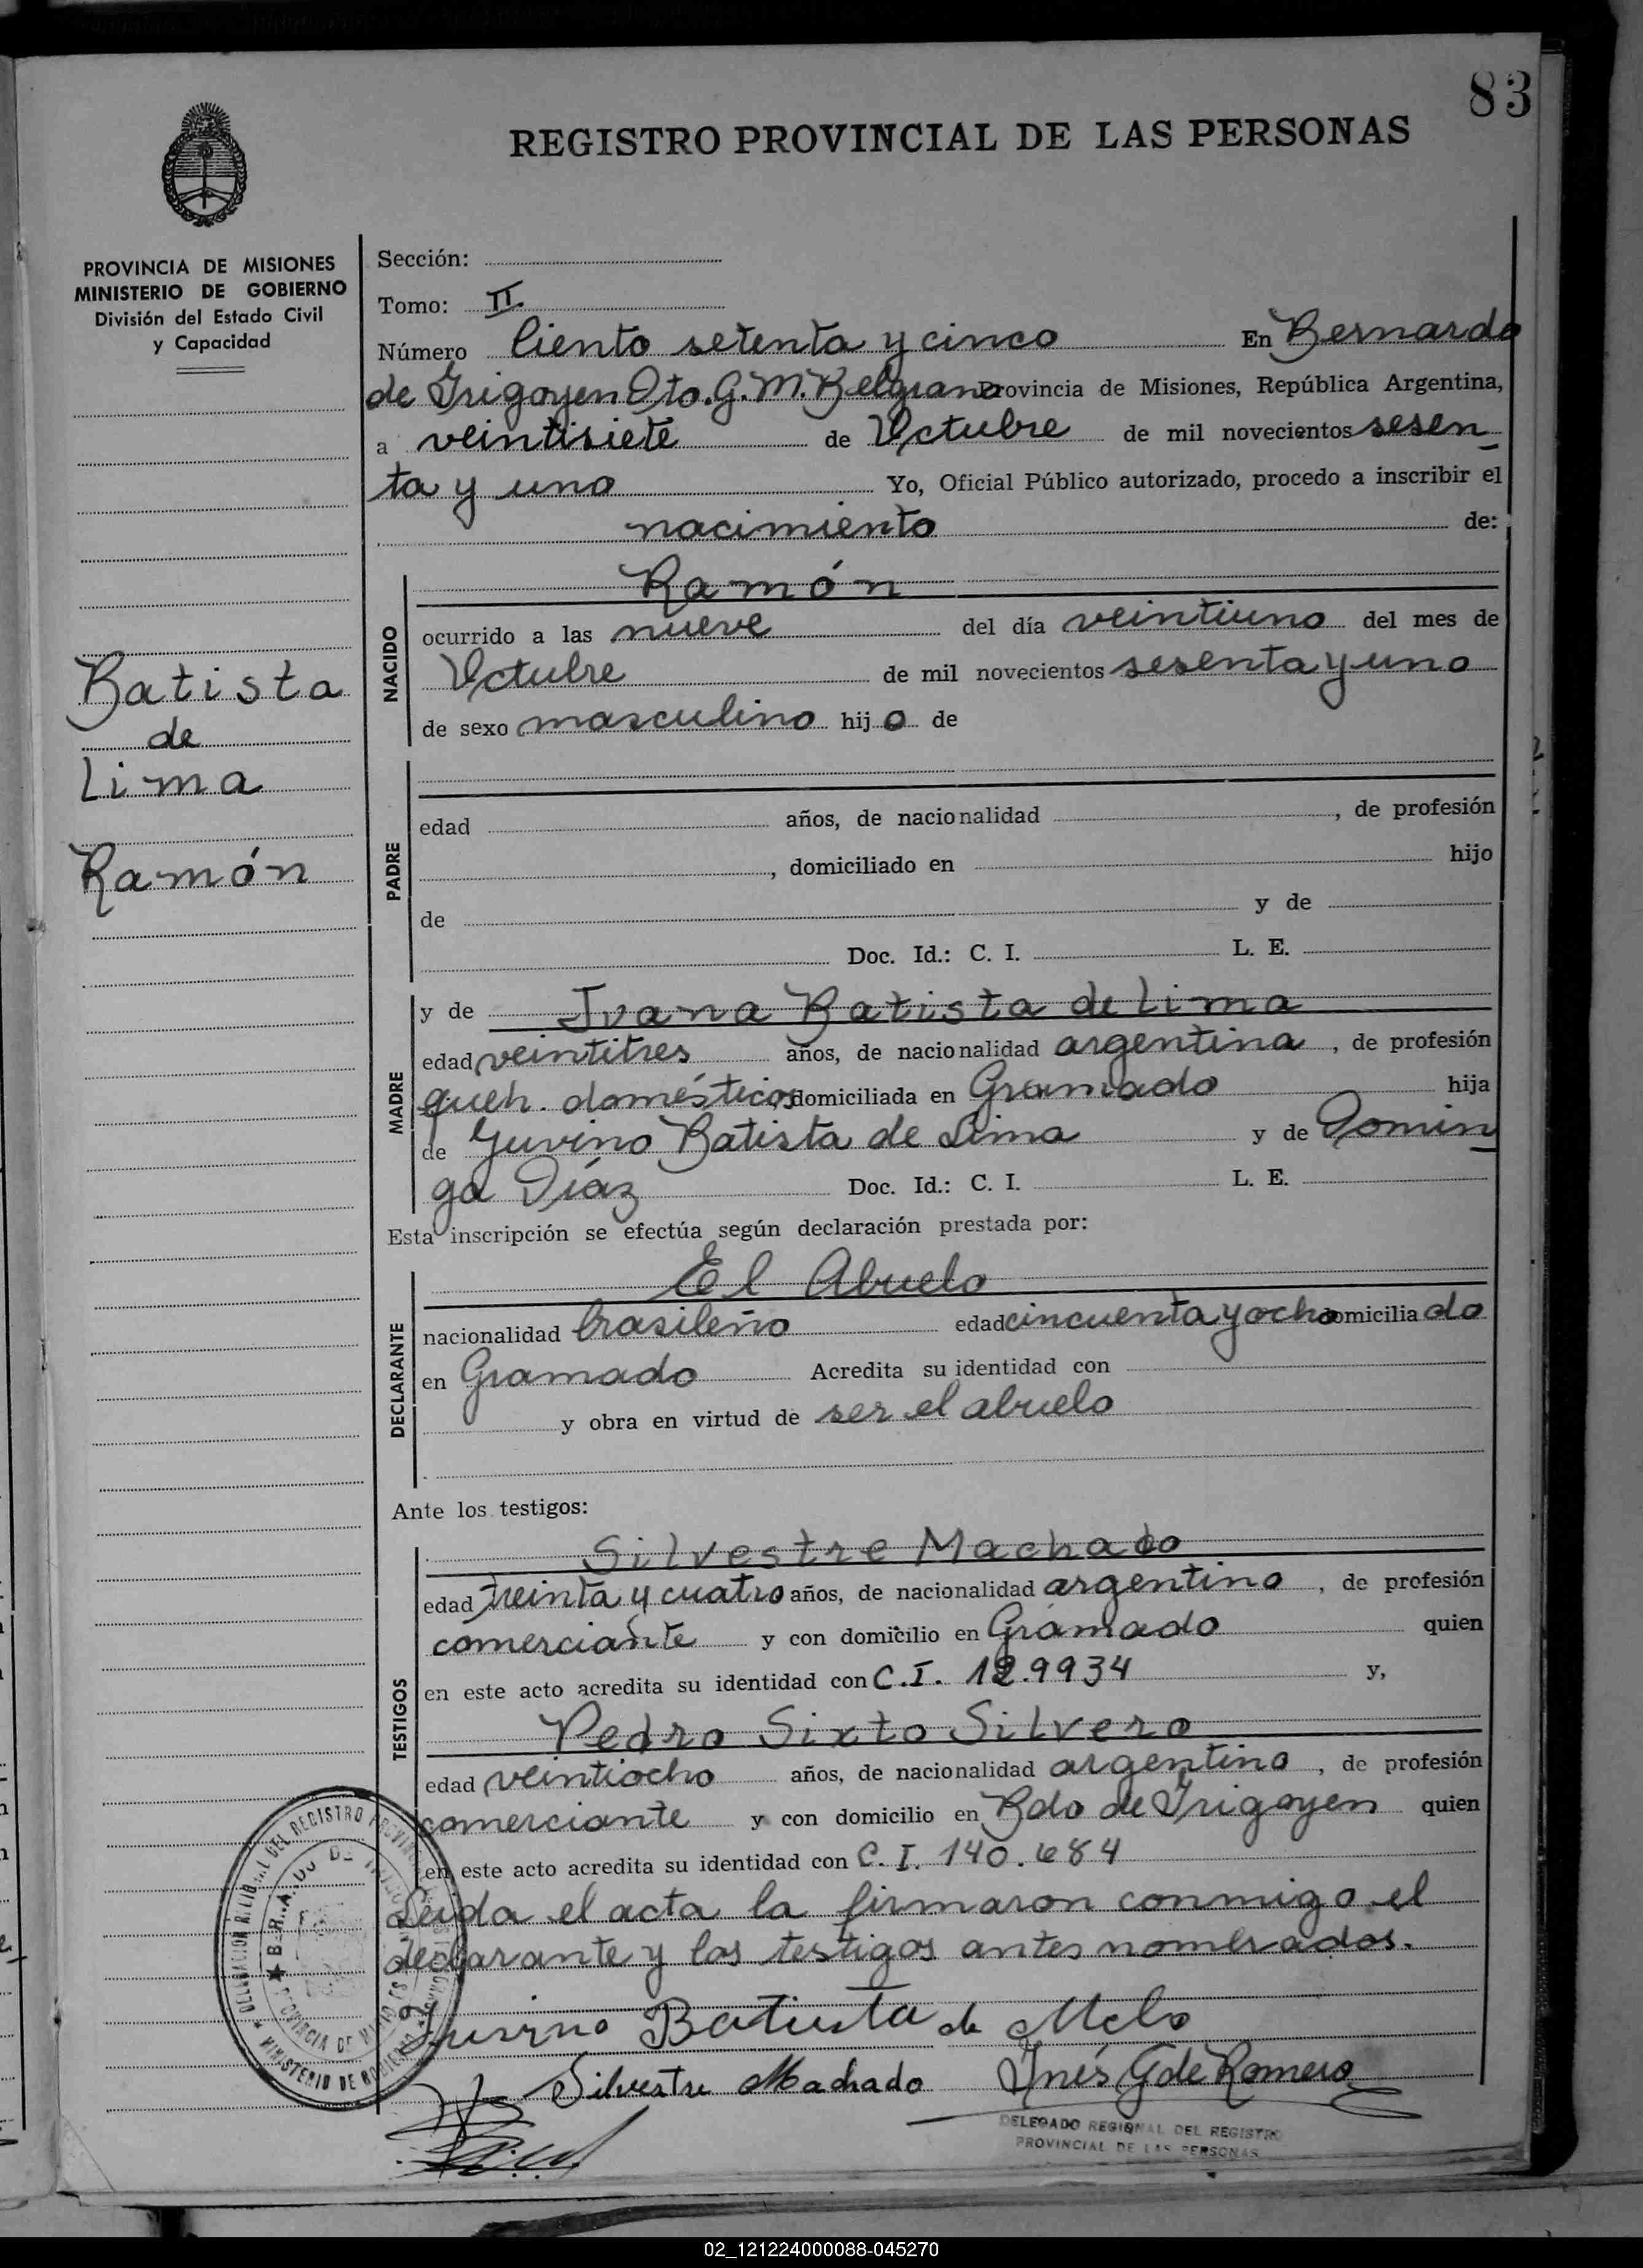 83
REGISTRO PROVINCIAL DE LAS PERSONAS
PROVINCIA DE MISIONES
MINISTERIO DE GOBIERNO
División del Estado Civil
y Capacidad
Batista
de
Lima
Ramón
Sección:
Tomo: II
Número Ciento setenta y cinco En Bernardo
de Irigoyen Dto. G. M. Belgrano Provincia de Misiones, República Argentina,
a veintisiete de Octubre de mil novecientos sesen
ta y uno Yo, Oficial Público autorizado, procedo a inscribir el
nacimiento de:
NACIDO
Ramón
ocurrido a las nueve del día veintiuno del mes de
Octubre de mil novecientos sesenta y uno
de sexo masculino hijo de
PADRE
edad años, de nacionalidad , de profesión
, domiciliado en hijo
de y de
Doc. Id.: C. I. L. E.
MADRE
y de Juana Batista de Lima
edad veintitres años, de nacionalidad argentina , de profesión
queh. domésticos domiciliada en Gramado hija
de Batista de Lima y de Domin
ga Díaz Doc. Id.: C. I. L. E.
Esta inscripción se efectúa según declaración prestada por:
DECLARANTE
El Abuelo
nacionalidad brasileño edad cincuenta y ocho domiciliado
en Gramado Acredita su identidad con
y obra en virtud de ser el abuelo
Ante los testigos:
TESTIGOS
Silvestre Machado
edad treinta y cuatro años, de nacionalidad argentino , de profesión
comerciante y con domicilio en Gramado quien
en este acto acredita su identidad con C.I. y,
Pedro Sixto Silvero
edad veintiocho años, de nacionalidad argentino , de profesión
comerciante y con domicilio en Bdo de Irigoyen quien
en este acto acredita su identidad con C. I. 140.684
Leida el acta la firmaron conmigo el
declarante y los testigos antes nombrados.
Batista de Melo
Silvestre Machado Inés G de Romero
DELEGADO REGIONAL DEL REGISTRO
PROVINCIAL DE LAS PERSONAS
02_121224000088-045270